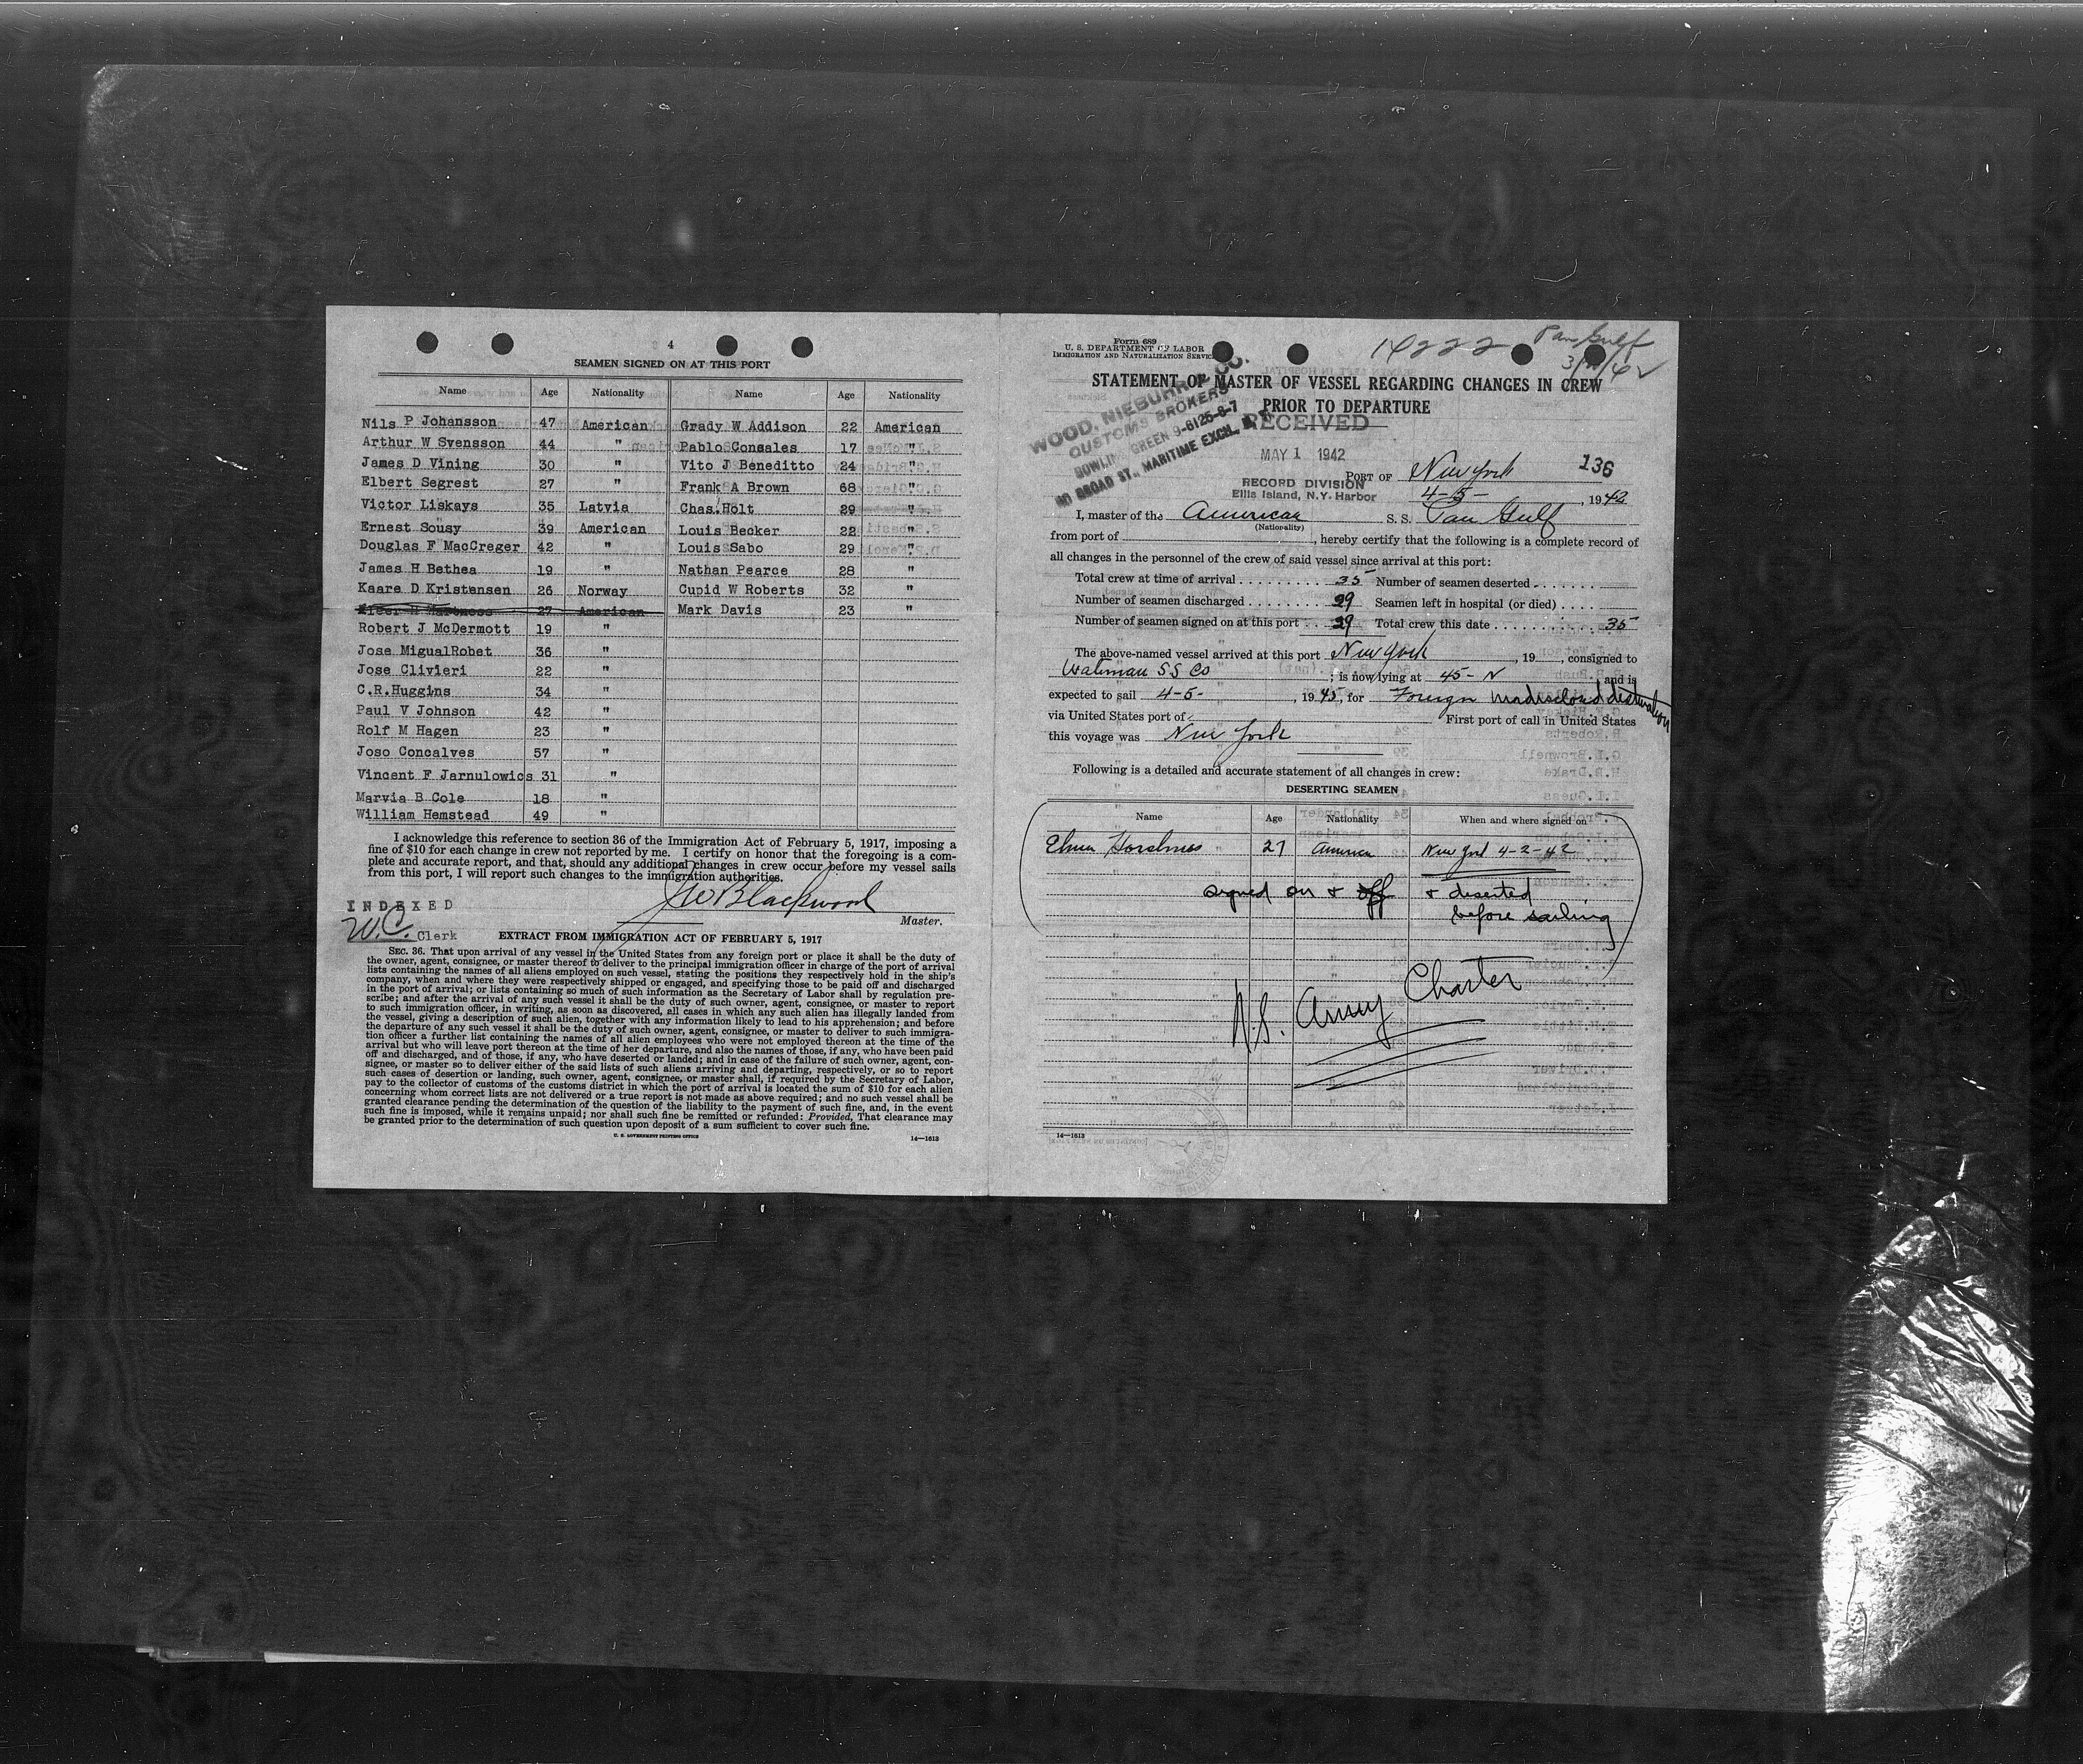 4
SEAMEN SIGNED ON AT THIS PORT
Name Age Nationality Name Age Nationality
Nils P Johansson 47 American Grady W Addison 22 American
Arthur W Svensson 44 " Pablo Consales 17 "
James D Vining 30 " Vito J Beneditto 24 "
Elbert Segrest 27 " Frank A Brown 68 "
Victor Liskays 35 Latvia Chas.Holt 29 "
Ernest Sousy 39 American Louis Becker 22 "
Douglas F MacCreger 42 " Louis Sabo 29 "
James H Bethea 19 " Nathan Pearce 28 "
Kaare D Kristensen 26 Norway Cupid W Roberts 32 "
27 American Mark Davis 23 "
Robert J McDermott 19 "
Jose MigualRobet 36 "
Jose Clivieri 22 "
C.R.Huggins 34 "
Paul V Johnson 42 "
Rolf M Hagen 23 "
Joso Concalves 57 "
Vincent F Jarnulowics 31 "
Marvia B Cole 18 "
William Hemstead 49 "
I acknowledge this reference to section 36 of the Immigration Act of February 5, 1917, imposing a
fine of $10 for each change in crew not reported by me. I certify on honor that the foregoing is a com-
plete and accurate report, and that, should any additional changes in crew occur before my vessel sails
from this port, I will report such changes to the immigration authorities.
JW Blackwood
Master.
INDEXED
W.C. Clerk
EXTRACT FROM IMMIGRATION ACT OF FEBRUARY 5, 1917
SEC. 36. That upon arrival of any vessel in the United States from any foreign port or place it shall be the duty of
the owner, agent, consignee, or master thereof to deliver to the principal immigration officer in charge of the port of arrival
lists containing the names of all aliens employed on such vessel, stating the positions they respectively hold in the ship's
company, when and where they were respectively shipped or engaged, and specifying those to be paid off and discharged
in the port of arrival; or lists containing so much of such information as the Secretary of Labor shall by regulation pre-
scribe; and after the arrival of any such vessel it shall be the duty of such owner, agent, consignee, or master to report
to such immigration officer, in writing, as soon as discovered, all cases in which any such alien has illegally landed from
the vessel, giving a description of such alien, together with any information likely to lead to his apprehension; and before
the departure of any such vessel it shall be the duty of such owner, agent, consignee, or master to deliver to such immigra-
tion officer a further list containing the names of all alien employees who were not employed thereon at the time of the
arrival but who will leave port thereon at the time of her departure, and also the names of those, if any, who have been paid
off and discharged, and of those, if any, who have deserted or landed; and in case of the failure of such owner, agent, con-
signee, or master so to deliver either of the said lists of such aliens arriving and departing, respectively, or so to report
such cases of desertion or landing, such owner, agent, consignee, or master shall, if required by the Secretary of Labor,
pay to the collector of customs of the customs district in which the port of arrival is located the sum of $10 for each alien
concerning whom correct lists are not delivered or a true report is not made as above required; and no such vessel shall be
granted clearance pending the determination of the question of the liability to the payment of such fine, and, in the event
such fine is imposed, while it remains unpaid; nor shall such fine be remitted or refunded: Provided, That clearance may
be granted prior to the determination of such question upon deposit of a sum sufficient to cover such fine.
U. S. GOVERNMENT PRINTING OFFICE 14—1613
Form 689
U. S. DEPARTMENT OF LABOR
IMMIGRATION AND NATURALIZATION SERVICE
14222 Pan Gulf
STATEMENT OF MASTER OF VESSEL REGARDING CHANGES IN CREW
PRIOR TO DEPARTURE
WOOD, NIEBUHR & CO.
CUSTOMS BROKERS
BOWLING GREEN 9-6125-6-7
BROAD ST., MARITIME EXCH., N.Y.
RECEIVED
MAY 1 1942
RECORD DIVISION
Ellis Island, N.Y. Harbor
PORT OF New York 136
4-5-, 1942
I, master of the American S. S. Pan Gulf
(Nationality)
from port of , hereby certify that the following is a complete record of
all changes in the personnel of the crew of said vessel since arrival at this port:
Total crew at time of arrival 35 Number of seamen deserted
Number of seamen discharged 29 Seamen left in hospital (or died)
Number of seamen signed on at this port 29 Total crew this date 35
The above-named vessel arrived at this port New York, 19 , consigned to
Waterman SS Co ; is now lying at 45-N and is
expected to sail 4-5-, 1945, for Foreign undisclosed destination
via United States port of First port of call in United States
this voyage was New York
Following is a detailed and accurate statement of all changes in crew:
DESERTING SEAMEN
Name Age Nationality When and where signed on
27 America New York 4-2-42
signed on & off & deserted
before sailing
U.S. Army Charter
14—1613